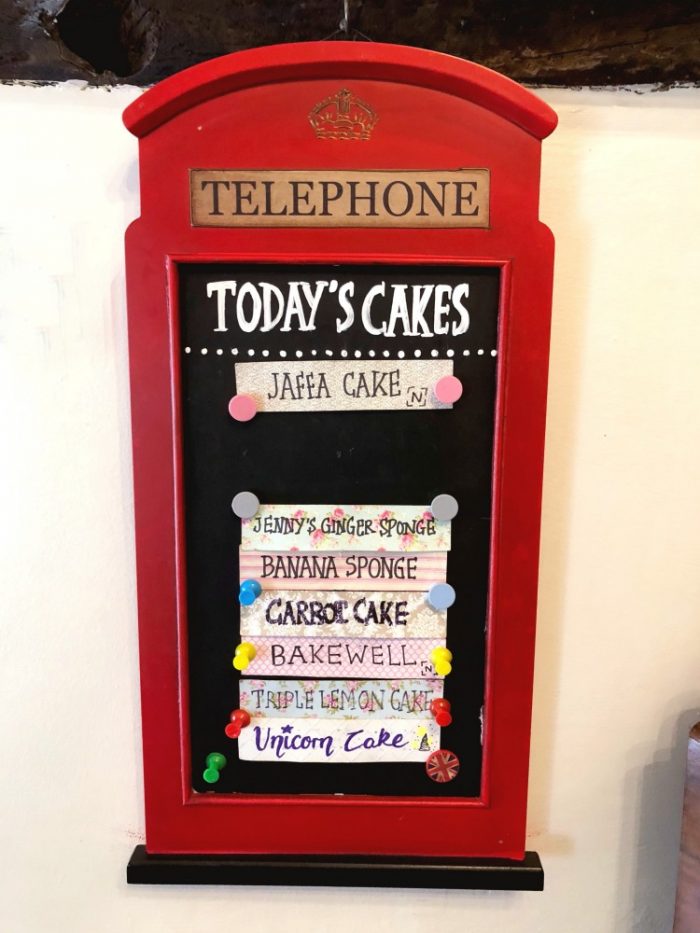 TELEPHONE
TODAY'S CAKES
JAFFA CAKE [N]
JENNY'S GINGER SPONGE
BANANA SPONGE
CARROT CAKE
BAKEWELL [N]
TRIPLE LEMON CAKE
Unicorn Cake